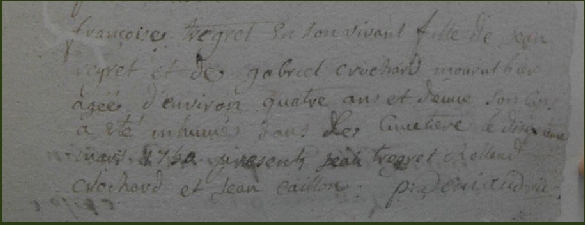 françoise tregret En son vivant fille de jean
regret et de gabriel crochard mourut hier
agée d'environ quatre ans et demie son corps
a été inhumé dans Le cimetiere le dixieme
mars present jean tregret
crochard et jean caillon